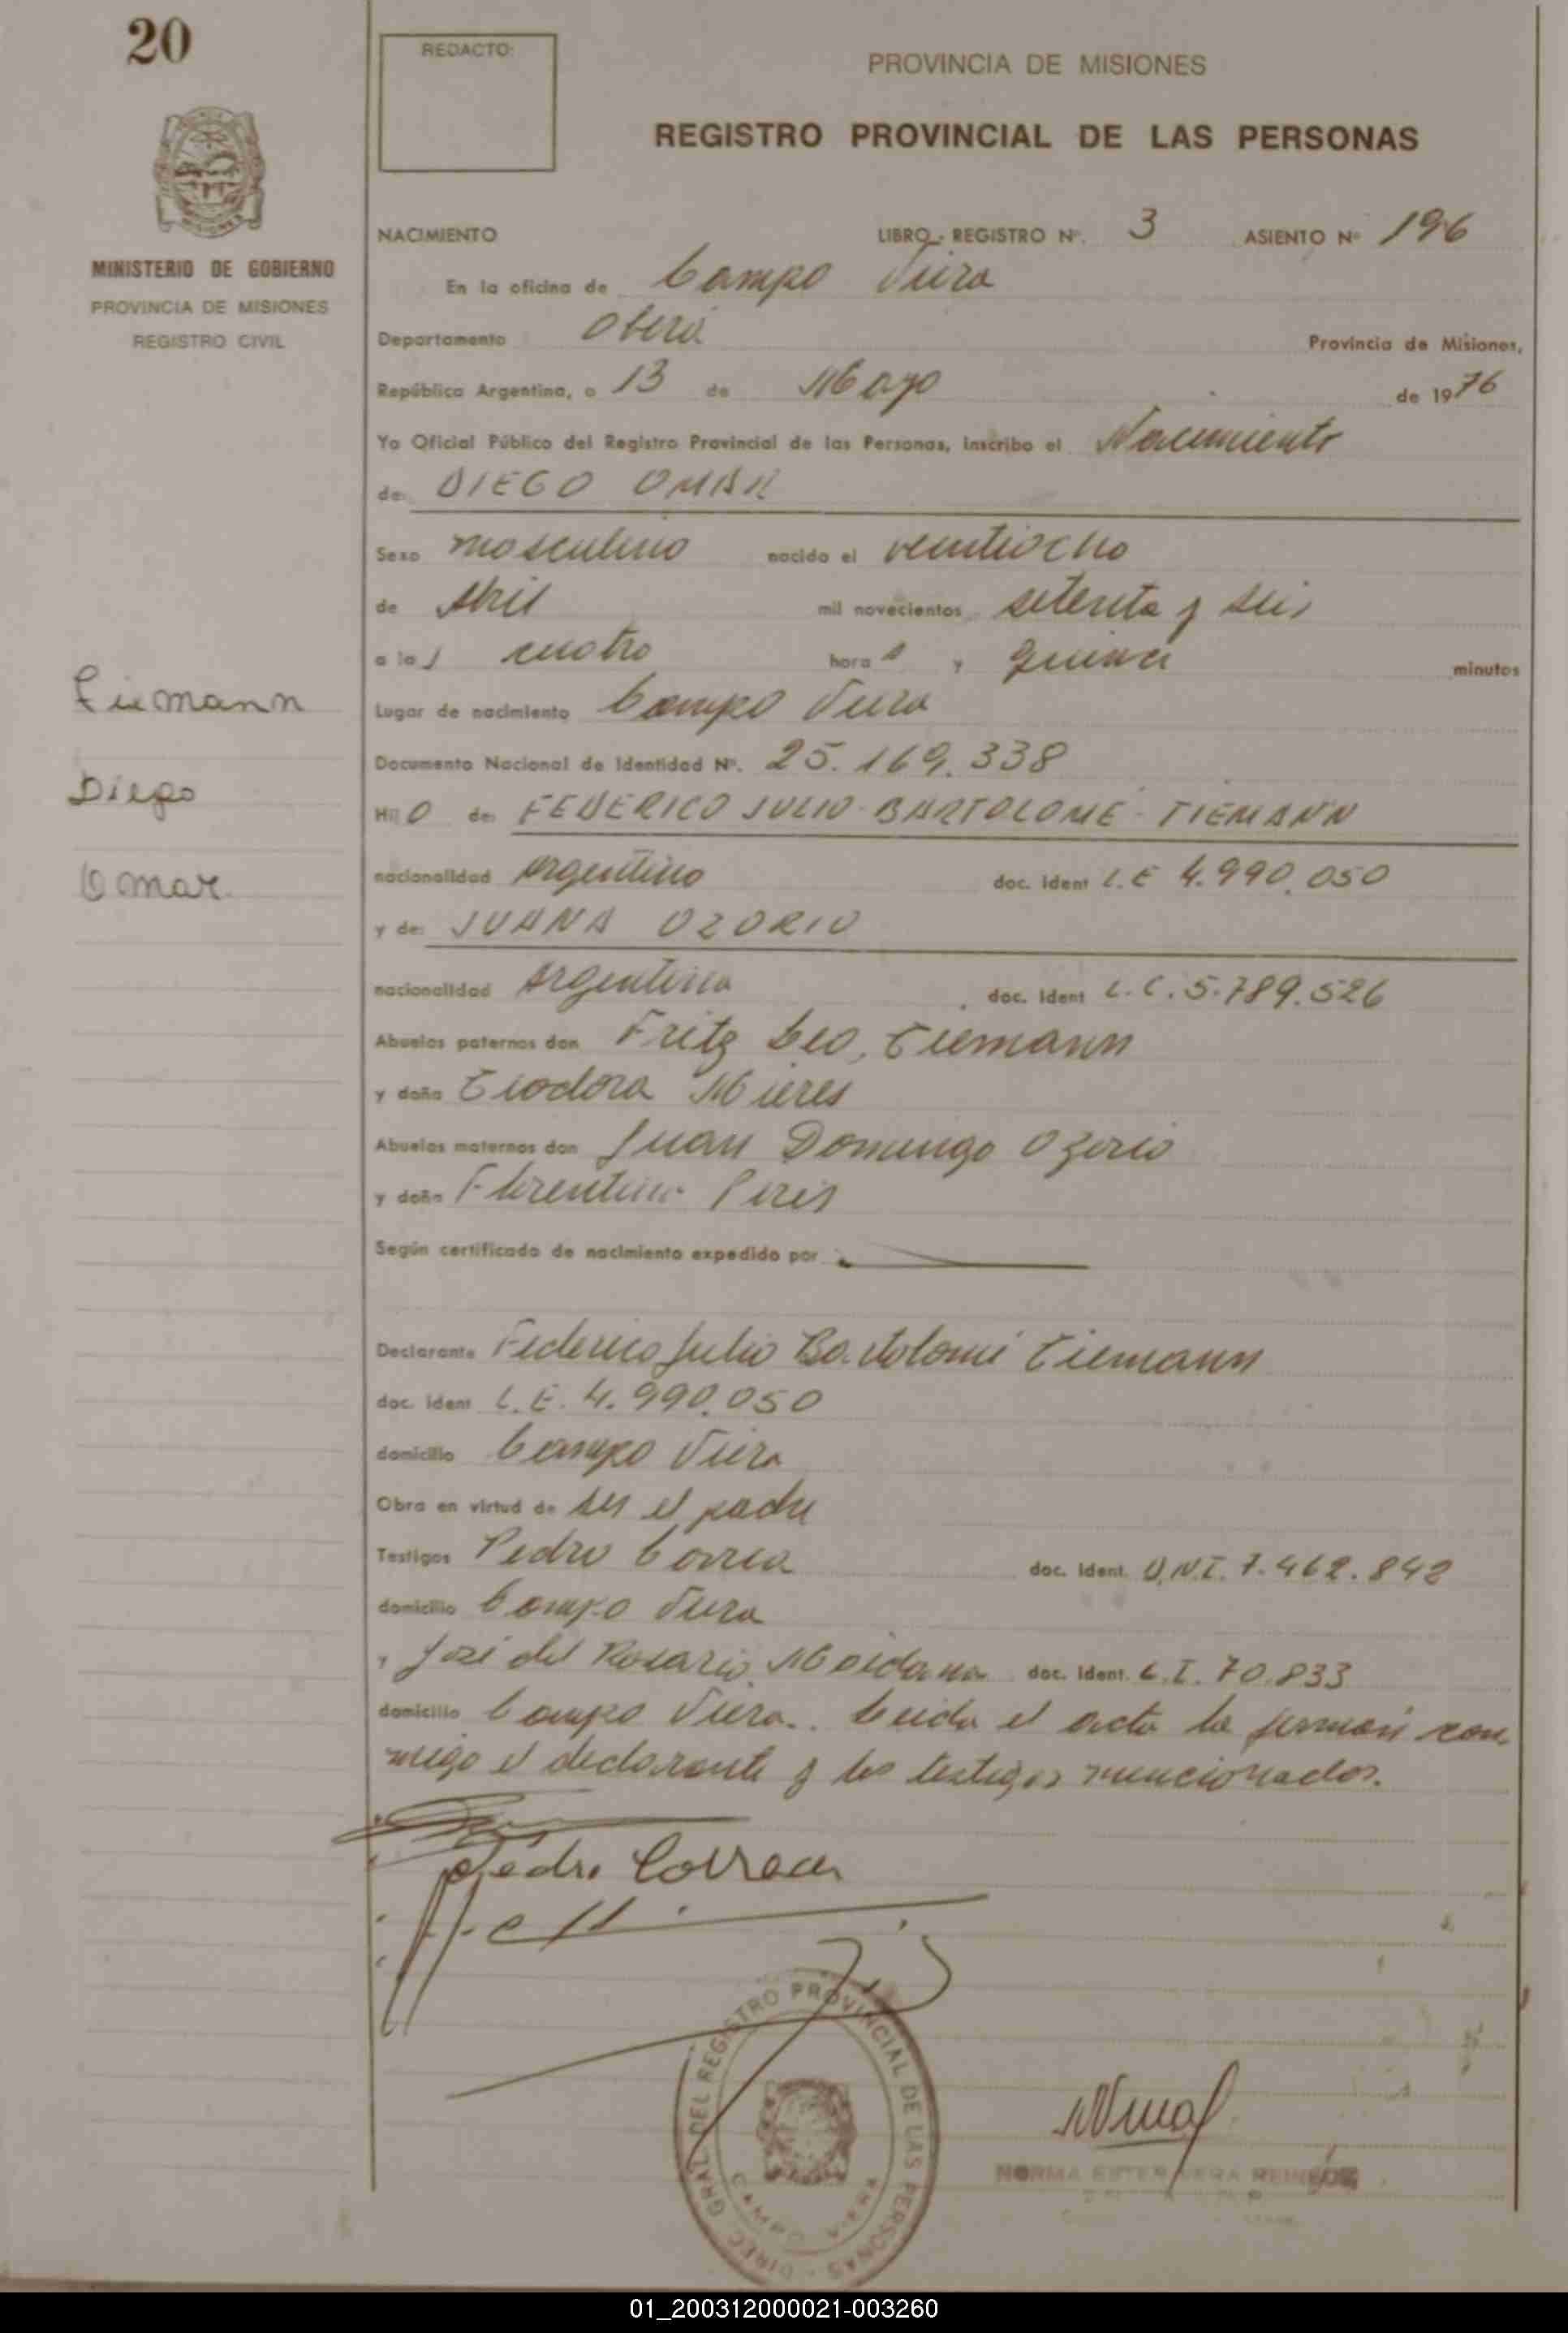 20
REDACTO:
PROVINCIA DE MISIONES
REGISTRO PROVINCIAL DE LAS PERSONAS
MINISTERIO DE GOBIERNO
PROVINCIA DE MISIONES
REGISTRO CIVIL
NACIMIENTO LIBRO - REGISTRO Nº. 3 ASIENTO Nº 196
En la oficina de Campo Viera
Departamento Oberá Provincia de Misiones,
República Argentina, a 13 de Mayo de 1976
Yo Oficial Público del Registro Provincial de las Personas, inscribo el Nacimiento
de: DIEGO OMAR
Sexo masculino nacido el veintiocho
de Abril mil novecientos setenta y seis
a las cuatro horas y quince minutos
Lugar de nacimiento Campo Viera
Documento Nacional de Identidad Nº. 25.169.338
Hijo de: FEDERICO JULIO BARTOLOMÉ TIEMANN
nacionalidad argentino doc. Ident L.E 4.990.050
y de: JUANA OZORIO
nacionalidad Argentina doc. Ident L.C. 5.789.526
Abuelos paternos don Fritz Leo, Tiemann
y doña Teodora Mieres
Abuelos maternos don Juan Domingo Ozorio
y doña Florentina Piris
Según certificado de nacimiento expedido por
Declarante Federico Julio Bartolomé Tiemann
doc. ident L.E. 4.990.050
domicilio Campo Viera
Obra en virtud de ser el padre
Testigos Pedro Correa doc. Ident. D.N.I. 7.462.842
domicilio Campo Viera
y José del Rosario Maidana doc. Ident. C.I. 70.833
domicilio Campo Viera. Leida el acta la firman con
migo el declarante y los testigos mencionados.
Tiemann
Diego
Omar
Pedro Correa
DIREC. GRAL. DEL REGISTRO PROVINCIAL DE LAS PERSONAS
CAMPO VIERA
NORMA ESTER VERA
01_200312000021-003260